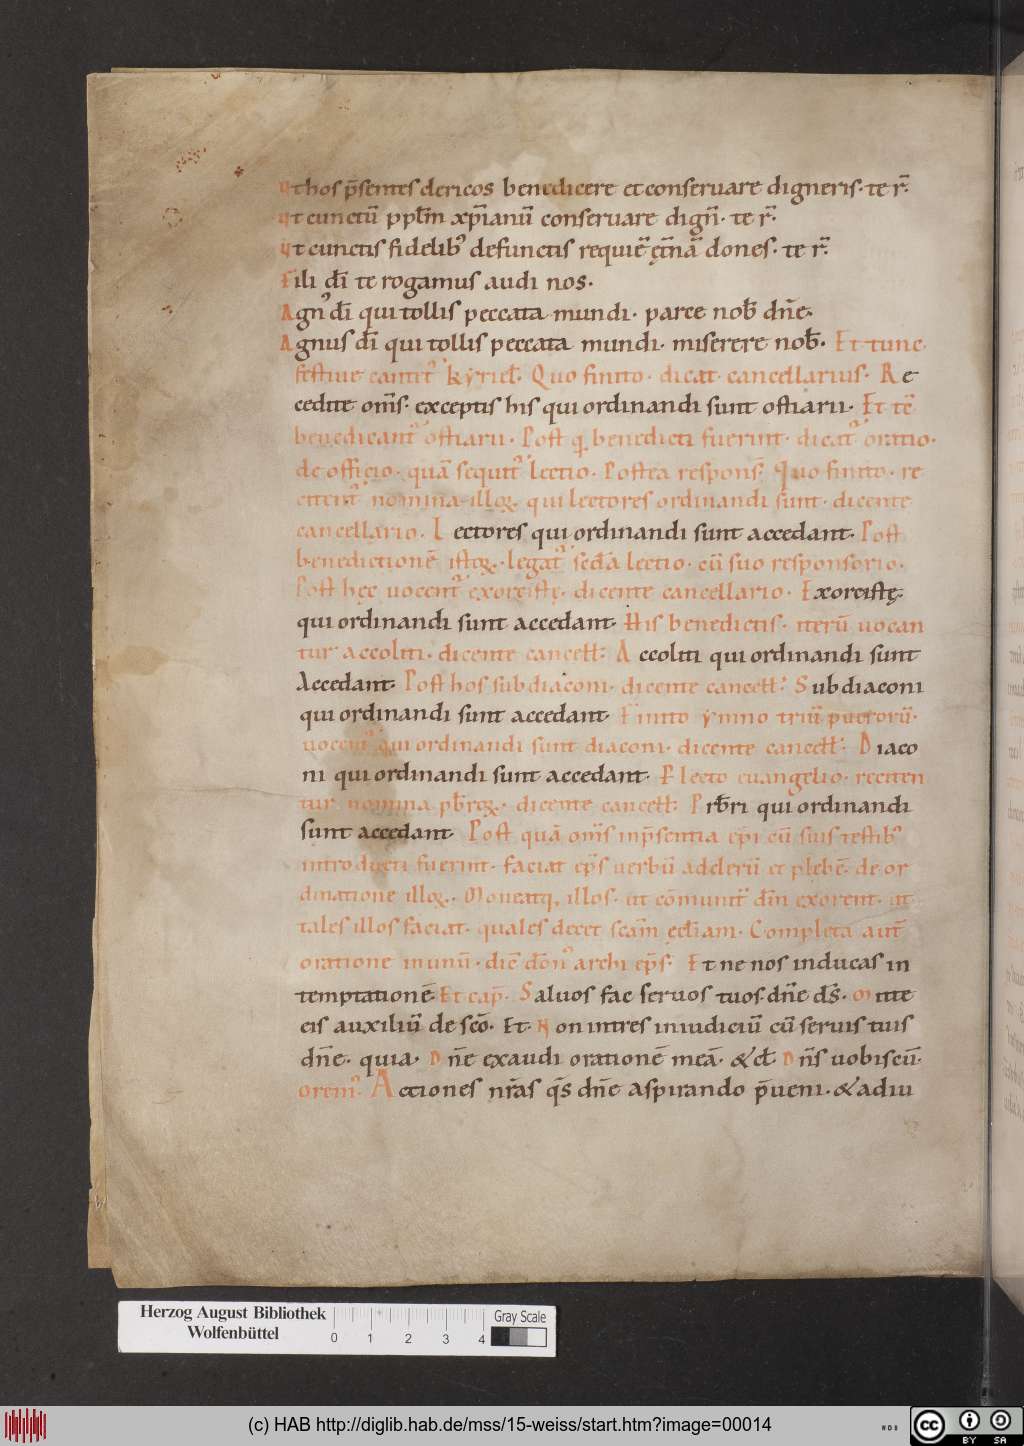 Ut hos p̄sentes clericos benedicere et conseruare digneris· te r̄·
Ut cunctū ppl̄m xp̄ianū conseruare dign̄· te r̄·
Ut cunctis fidelib' defunctis requiē ęt̄nā dones· te r̄·
Fili dī te rogamus audi nos·
Agn' dī qui tollis peccata mundi· parce nob̄ dn̄e·
Agnus dī qui tollis peccata mundi· miserere nob̄· Et tunc
festiue cantit' kyriel̄· Quo finito· dicat cancellarius· Re
cedite om̄s· exceptis his qui ordinandi sunt ostiarii· Et tē
benedicant' ostiarii· Post q̄ benedicti fuerint· dicat' oratio·
de officio· quā sequit' lectio· Postea respons̄· Quo finito· re
citent' nomina illoꝝ qui lectores ordinandi sunt· dicente
cancellario· Lectores qui ordinandi sunt accedant· Post
benedictionē istoꝝ· legat' sedā lectio· cū suo responsorio·
Post hęc uocent' exorcistę· dicente cancellario· Exorcistę·
qui ordinandi sunt accedant· His benedictis· iterū uocan
tur accoliti· dicente cancell̄: Accoliti qui ordinandi sunt
Accedant· Post hos subdiaconi· dicente cancell̄: Subdiaconi
qui ordinandi sunt accedant· Finito ymno triū puerorū·
uocent' qui ordinandi sunt diaconi· dicente cancell̄: Diaco
ni qui ordinandi sunt accedant· Plecto euangelio· reciten
tur nomina pb̄roꝝ· dicente cancell̄: Prb̄ri qui ordinandi
sunt accedant· Post quā om̄s inp̄sentia ep̄i cū suis testib'
introducti fuerint· faciat ep̄s uerbū ad clerū et plebē· de or
dinatione illoꝝ· Moneatq; illos· ut cōmunit' dn̄m exorent· ut
tales illos faciat· quales decet scām ęcl̄iam· Completa aut̄
oratione in unū· dic̄ dōn' archi ep̄s· Et ne nos inducas in
temptationē· Et cap̄· Saluos fac seruos tuos· dn̄e ds̄· Mitte
eis auxiliū de scō· Et· Non intres in iudiciū cū seruis tuis
dn̄e· quia· Dn̄e exaudi orationē meā· & cł Dn̄s uobiscū·
Orem'· Actiones nr̄as qs̄ dn̄e aspirando p̄ueni· & adiu
Herzog August Bibliothek
Wolfenbüttel
0 1 2 3 4
Gray Scale
(c) HAB http://diglib.hab.de/mss/15-weiss/start.htm?image=00014
WDB
cc BY SA